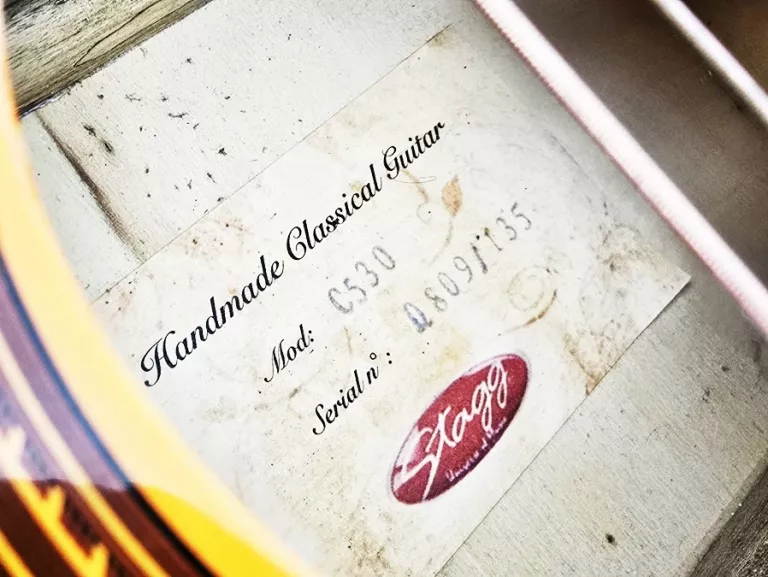 Handmade Classical Guitar
Mod: C530
Serial nº: 0809/135
Stagg